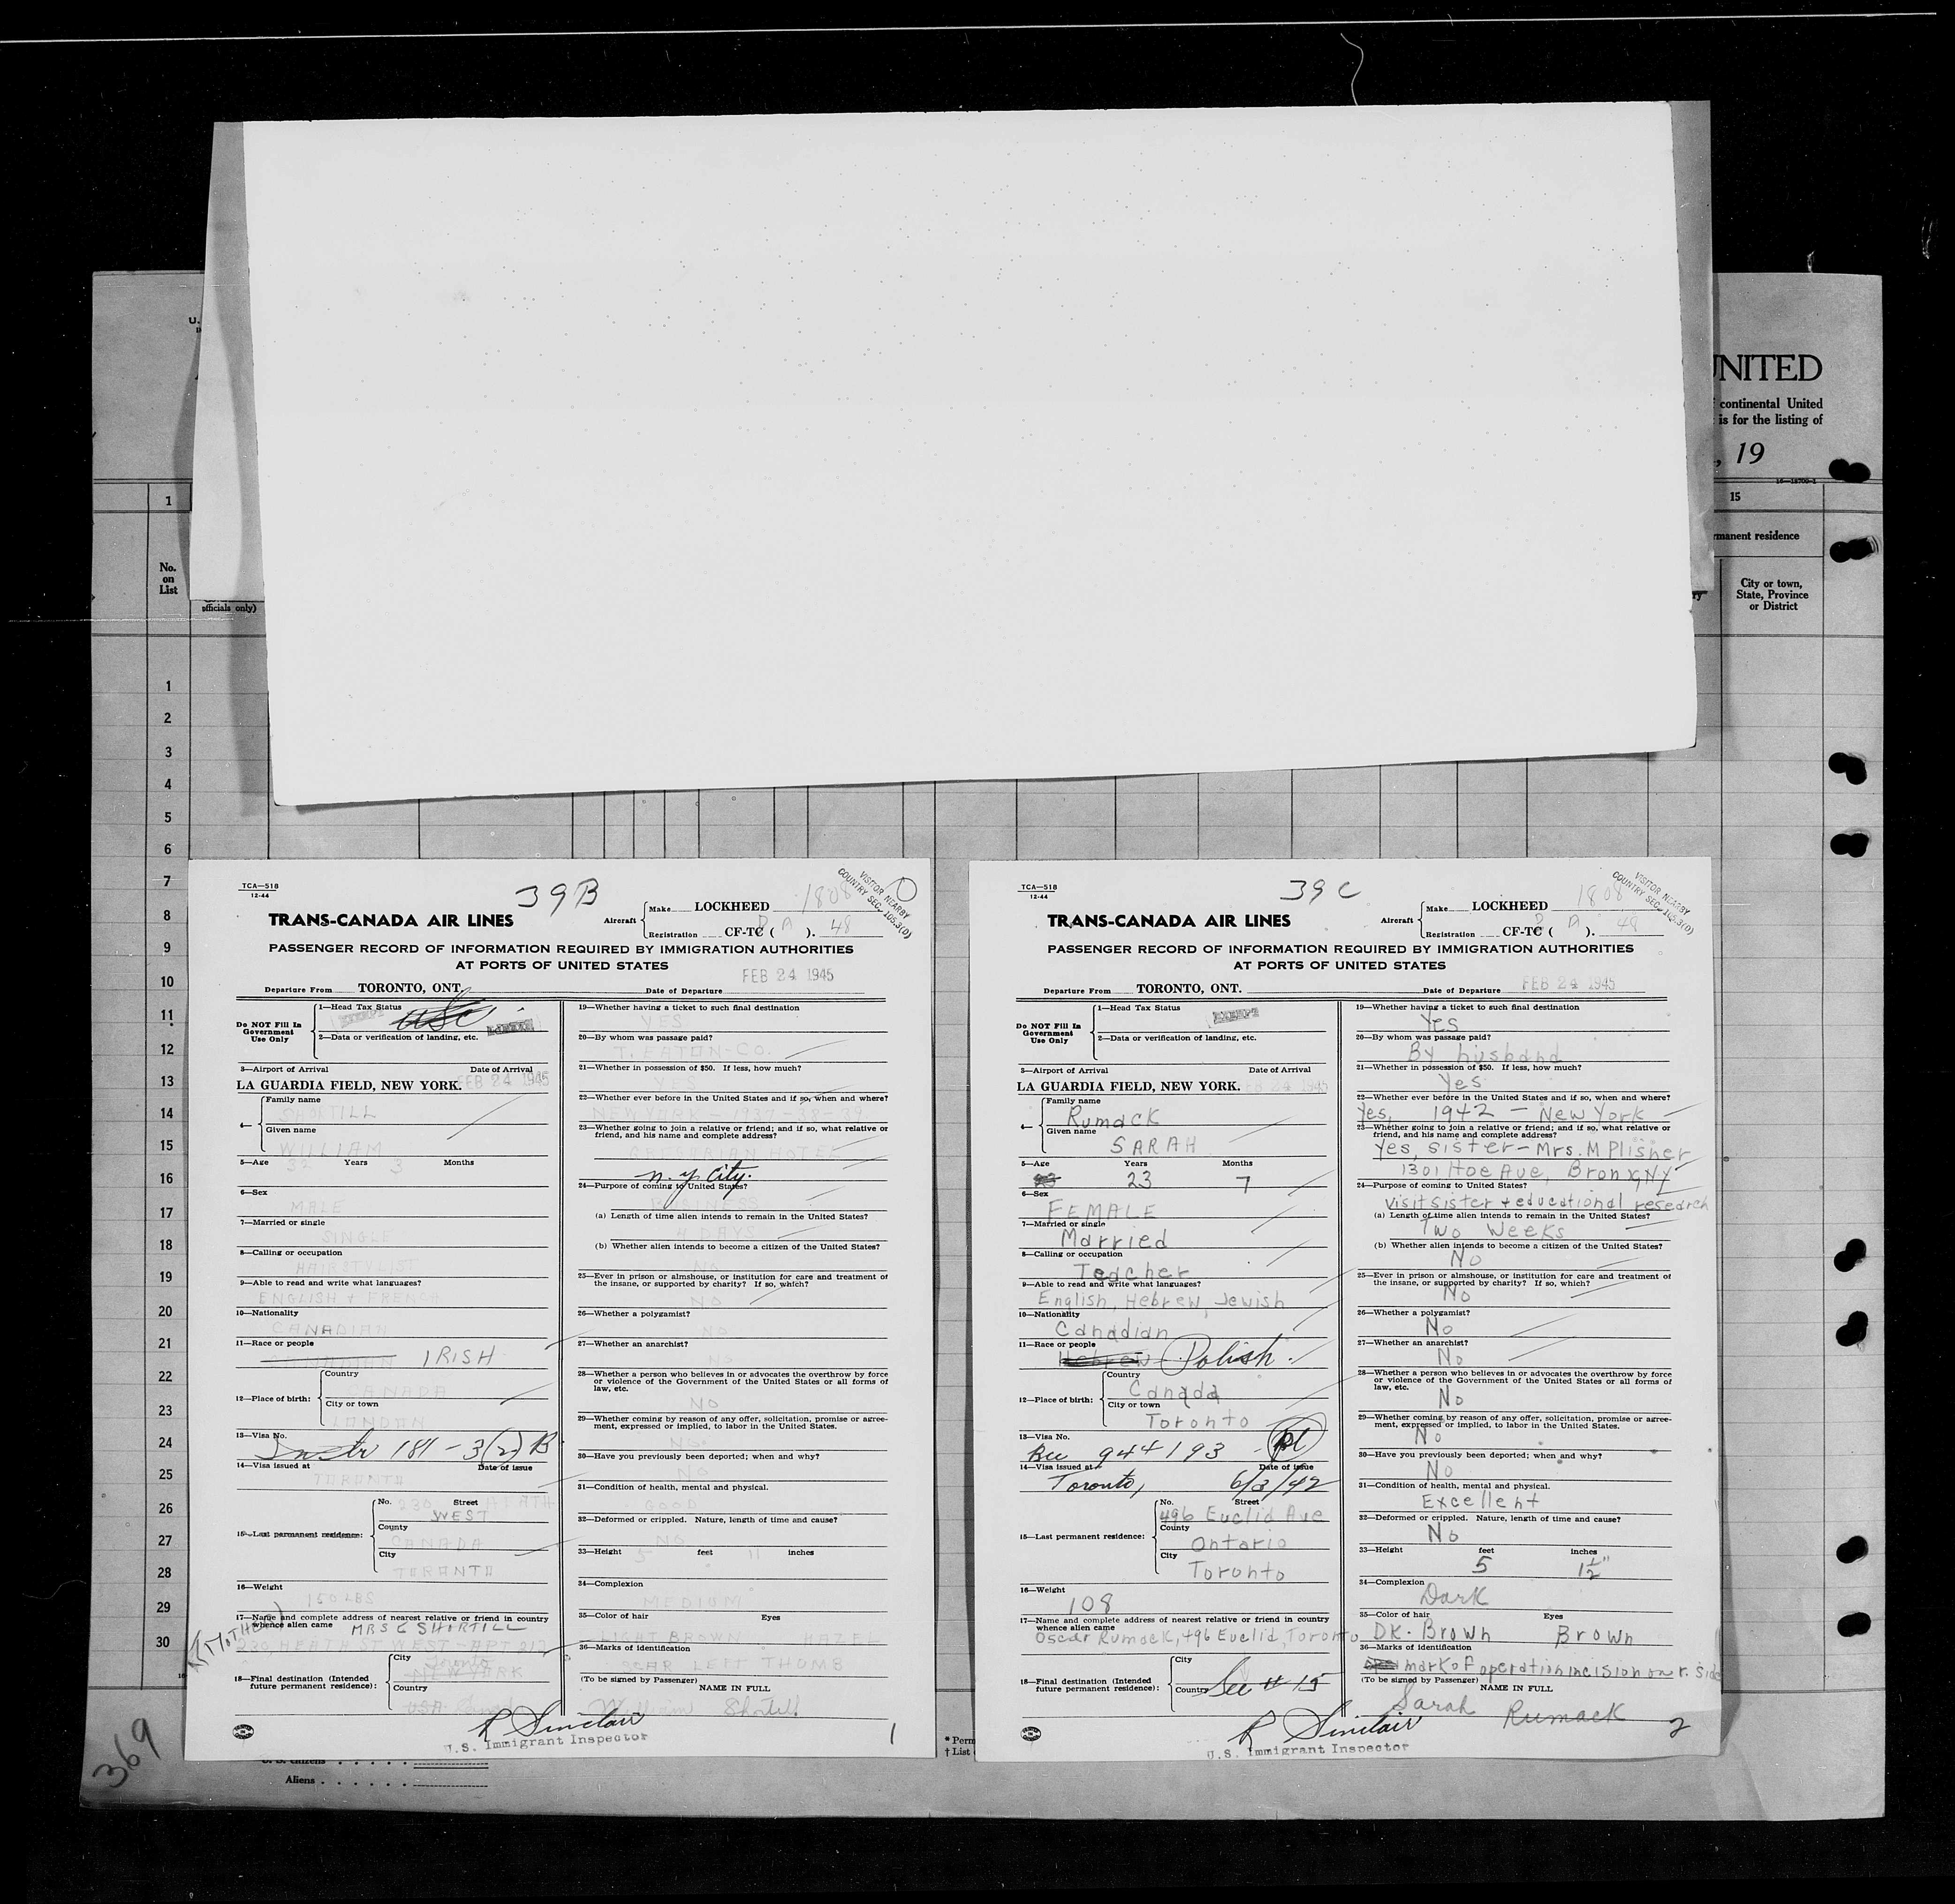 U.
UNITED
continental United
is for the listing of
, 19
16—18700-1
1
15
rmanent residence
No.
on
List
officials only)
City or town,
State, Province
or District
1
2
3
4
5
6
7
8
9
10
11
12
13
14
15
16
17
18
19
20
21
22
23
24
25
26
27
28
29
30
369
Aliens . . . . . .
* Perm
† List
TCA—518
12-44
39B
1808
VISITOR NEARBY
COUNTRY SEC. 105.3(D)
TRANS-CANADA AIR LINES
Aircraft
Make LOCKHEED
Registration CF-TC ( A ). 48
PASSENGER RECORD OF INFORMATION REQUIRED BY IMMIGRATION AUTHORITIES
AT PORTS OF UNITED STATES
FEB 24 1945
Departure From TORONTO, ONT. Date of Departure
Do NOT Fill In
Government
Use Only
1—Head Tax Status
EXEMPT USC
2—Data or verification of landing, etc.
3—Airport of Arrival Date of Arrival
LA GUARDIA FIELD, NEW YORK. FEB 24 1945
4—
Family name
SHORTILL
Given name
WILLIAM
5—Age 32 Years 3 Months
6—Sex
MALE
7—Married or single
SINGLE
8—Calling or occupation
HAIRSTYLIST
9—Able to read and write what languages?
ENGLISH & FRENCH
10—Nationality
CANADIAN
11—Race or people
IRISH
12—Place of birth:
Country
CANADA
City or town
LONDON
13—Visa No.
Instr 181-3(2) B
14—Visa issued at Date of issue
TORONTO
15—Last permanent residence:
No. 230 Street HEATH
WEST
County
CANADA
City
TORONTO
16—Weight
150 LBS
17—Name and complete address of nearest relative or friend in country
whence alien came MRS C SHORTILL
(MOTHER)
230, HEATH ST WEST - APT 212
18—Final destination (Intended
future permanent residence):
City
Toronto
NEW YORK
Country
USA
19—Whether having a ticket to such final destination
YES
20—By whom was passage paid?
T. EATON-CO.
21—Whether in possession of $50. If less, how much?
YES
22—Whether ever before in the United States and if so, when and where?
NEW YORK - 1937-38-39
23—Whether going to join a relative or friend; and if so, what relative or
friend, and his name and complete address?
GREGORIAN HOTEL
n. y City.
24—Purpose of coming to United States?
BUSINESS
(a) Length of time alien intends to remain in the United States?
4 DAYS
(b) Whether alien intends to become a citizen of the United States?
NO
25—Ever in prison or almshouse, or institution for care and treatment of
the insane, or supported by charity? If so, which?
NO
26—Whether a polygamist?
NO
27—Whether an anarchist?
NO
28—Whether a person who believes in or advocates the overthrow by force
or violence of the Government of the United States or all forms of
law, etc.
NO
29—Whether coming by reason of any offer, solicitation, promise or agree-
ment, expressed or implied, to labor in the United States.
NO
30—Have you previously been deported; when and why?
NO
31—Condition of health, mental and physical.
GOOD
32—Deformed or crippled. Nature, length of time and cause?
NO
33—Height 5 feet 11 inches
34—Complexion
MEDIUM
35—Color of hair Eyes
LIGHT BROWN HAZEL
36—Marks of identification
SCAR LEFT THUMB
(To be signed by Passenger)
NAME IN FULL
William Shortill
R Sinclair
U.S. Immigrant Inspector
1
TCA—518
12-44
39C
1808
VISITOR NEARBY
COUNTRY SEC. 105.3(D)
TRANS-CANADA AIR LINES
Aircraft
Make LOCKHEED
Registration CF-TC ( A ). 48
PASSENGER RECORD OF INFORMATION REQUIRED BY IMMIGRATION AUTHORITIES
AT PORTS OF UNITED STATES
FEB 24 1945
Departure From TORONTO, ONT. Date of Departure
Do NOT Fill In
Government
Use Only
1—Head Tax Status
EXEMPT
2—Data or verification of landing, etc.
3—Airport of Arrival Date of Arrival
LA GUARDIA FIELD, NEW YORK. FEB 24 1945
4—
Family name
Rumack
Given name
SARAH
5—Age Years Months
23 7
6—Sex
FEMALE
7—Married or single
Married
8—Calling or occupation
Teacher
9—Able to read and write what languages?
English, Hebrew, Jewish
10—Nationality
Canadian
11—Race or people
Hebrew Polish.
12—Place of birth:
Country
Canada
City or town
Toronto
13—Visa No.
Bcc 944193 - pl
14—Visa issued at Date of issue
Toronto, 6/3/42
15—Last permanent residence:
No. Street
496 Euclid Ave
County
Ontario
City
Toronto
16—Weight
108
17—Name and complete address of nearest relative or friend in country
whence alien came
Oscar Rumack, 496 Euclid, Toronto
18—Final destination (Intended
future permanent residence):
City
Country See # 15
19—Whether having a ticket to such final destination
Yes
20—By whom was passage paid?
By husband
21—Whether in possession of $50. If less, how much?
Yes
22—Whether ever before in the United States and if so, when and where?
Yes, 1942 - New York
23—Whether going to join a relative or friend; and if so, what relative or
friend, and his name and complete address?
Yes, sister - Mrs. M Plisner
1301 Hoe Ave, Bronx, NY
24—Purpose of coming to United States?
visit sister + educational research
(a) Length of time alien intends to remain in the United States?
Two weeks
(b) Whether alien intends to become a citizen of the United States?
No
25—Ever in prison or almshouse, or institution for care and treatment of
the insane, or supported by charity? If so, which?
No
26—Whether a polygamist?
No
27—Whether an anarchist?
No
28—Whether a person who believes in or advocates the overthrow by force
or violence of the Government of the United States or all forms of
law, etc.
No
29—Whether coming by reason of any offer, solicitation, promise or agree-
ment, expressed or implied, to labor in the United States.
No
30—Have you previously been deported; when and why?
No
31—Condition of health, mental and physical.
Excellent
32—Deformed or crippled. Nature, length of time and cause?
No
33—Height feet inches
5 1½"
34—Complexion
Dark
35—Color of hair Eyes
DK. Brown Brown
36—Marks of identification
mark of operation incision on r. side
(To be signed by Passenger)
NAME IN FULL
Sarah Rumack
R Sinclair
U.S. Immigrant Inspector
2